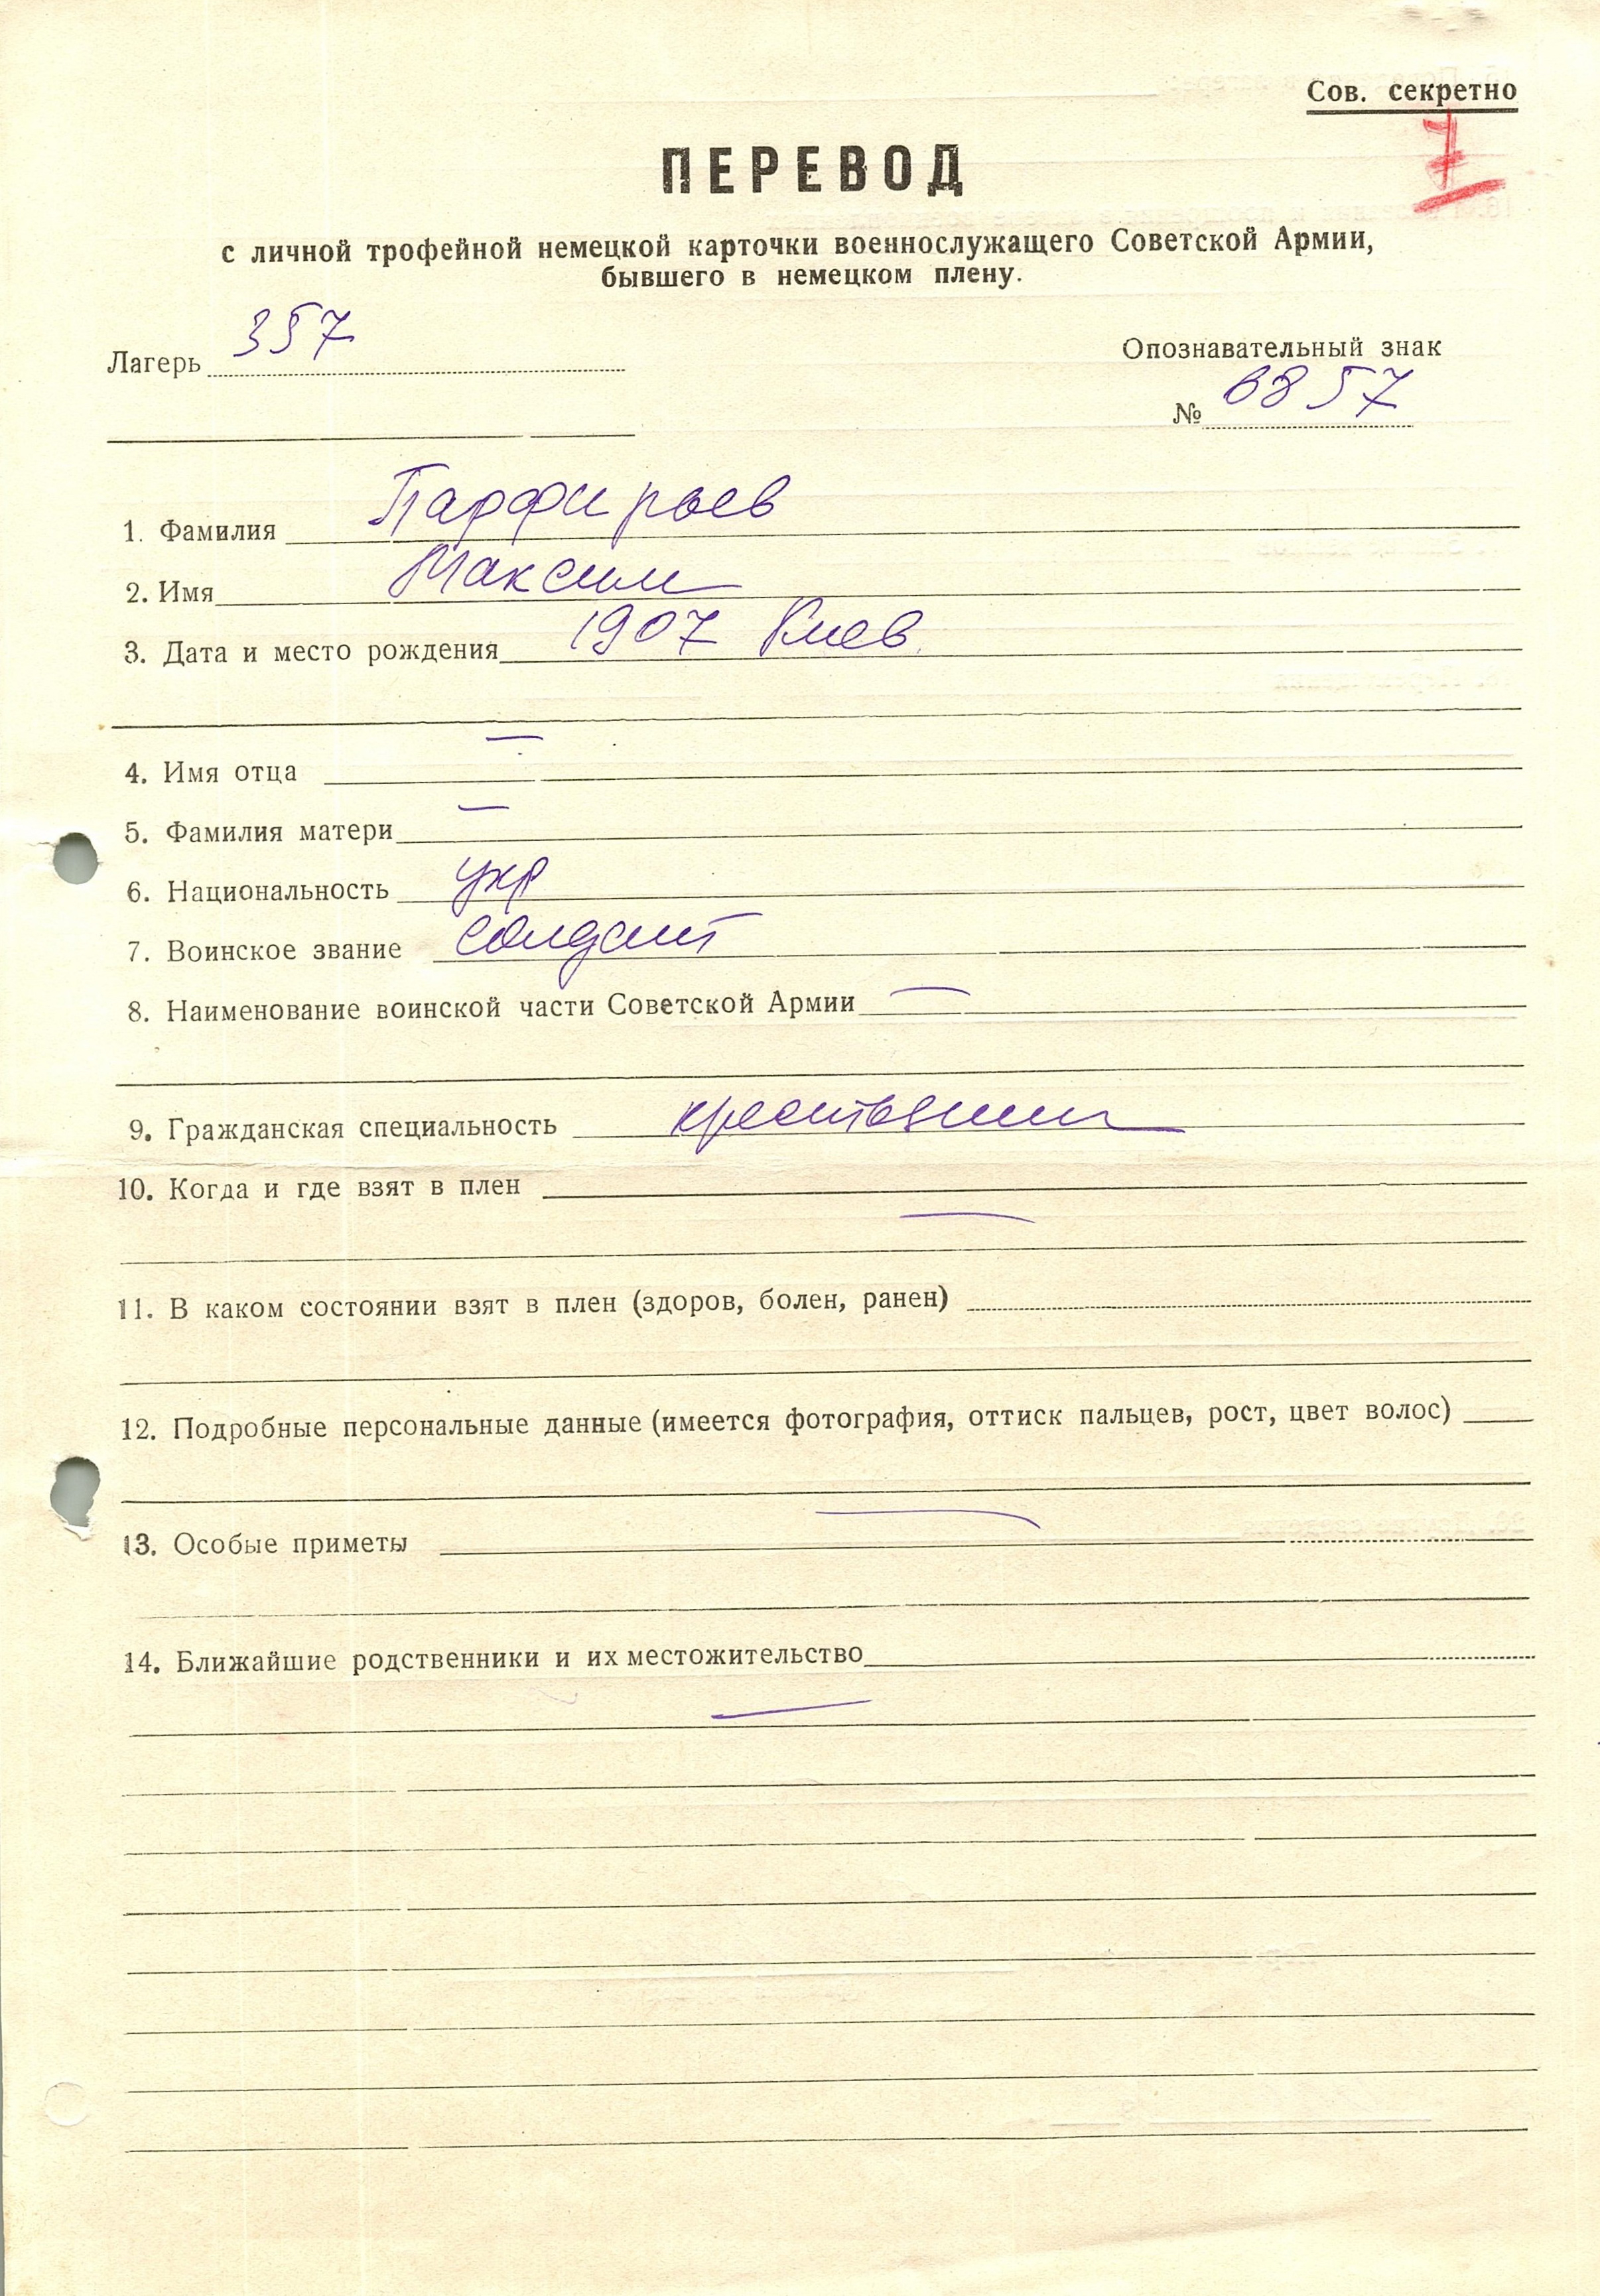 Сов. секретно
7
ПЕРЕВОД
с личной трофейной немецкой карточки военнослужащего Советской Армии,
бывшего в немецком плену.
Лагерь 357
Опознавательный знак
№ 6857
1. Фамилия Парфирьев
2. Имя Максим
3. Дата и место рождения 1907 Киев
4. Имя отца —
5. Фамилия матери —
6. Национальность укр
7. Воинское звание солдат
8. Наименование воинской части Советской Армии —
9. Гражданская специальность крестьянин
10. Когда и где взят в плен
—
11. В каком состоянии взят в плен (здоров, болен, ранен)
12. Подробные персональные данные (имеется фотография, оттиск пальцев, рост, цвет волос)
—
13. Особые приметы
14. Ближайшие родственники и их местожительство
—